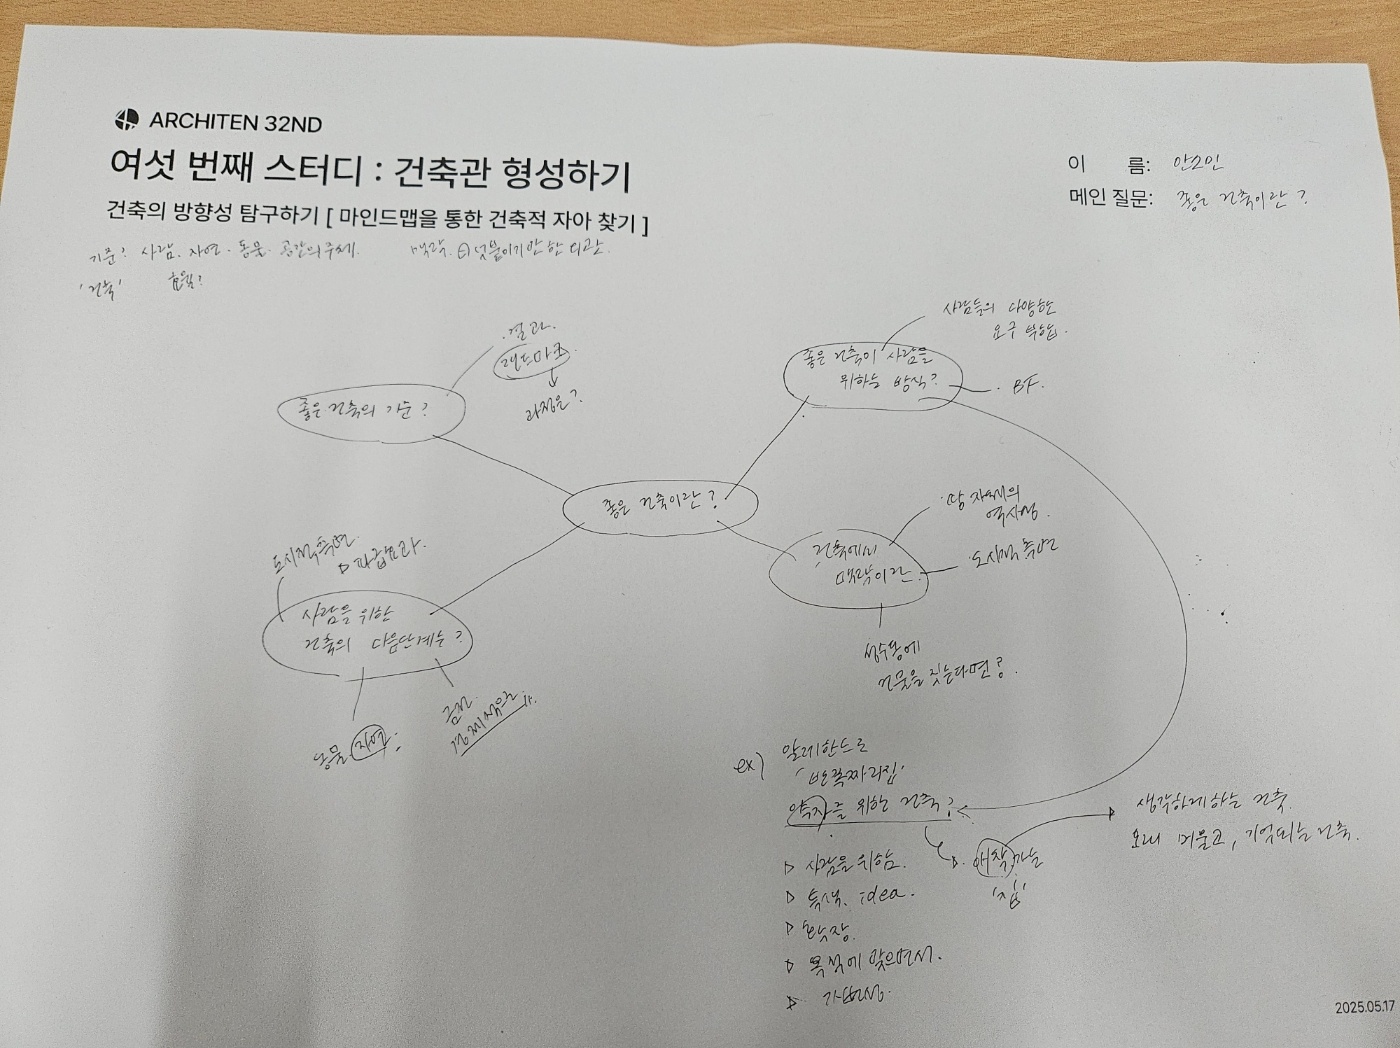 ARCHITEN 32ND
여섯 번째 스터디 : 건축관 형성하기
건축의 방향성 탐구하기 [ 마인드맵을 통한 건축적 자아 찾기 ]
이 름: 안소인
메인 질문: 좋은 건축이란?
기준? 사람, 자연·동물· 공간의 주체.
맥락. 덧붙이기만 한 외관.
'건축' 효율?
·결과.
랜드마크.
과정은?
좋은 건축의 기준?
사람들의 다양한
요구 부합.
좋은 건축이 사람을
위하는 방식?
· BF.
좋은 건축이란?
·땅 자체의
역사성.
건축에서
맥락이란.
·도시적 측면
성수동에
건물을 짓는다면?
도시적 측면.
▷ 파급효과.
사람을 위한
건축의 다음단계는?
동물 자연.
금전.
경제적으로
ex) 알레한드로
'반쪽짜리집'
약자를 위한 건축?
▷ 사람을 위함.
▷ idea.
▷ 확장.
▷ 목적에 맞으면서.
▷ 가변성.
▷. 애착가는
'집'
▷ 생각하게하는 건축.
오래 머물고, 기억되는 건축.
2025.05.17